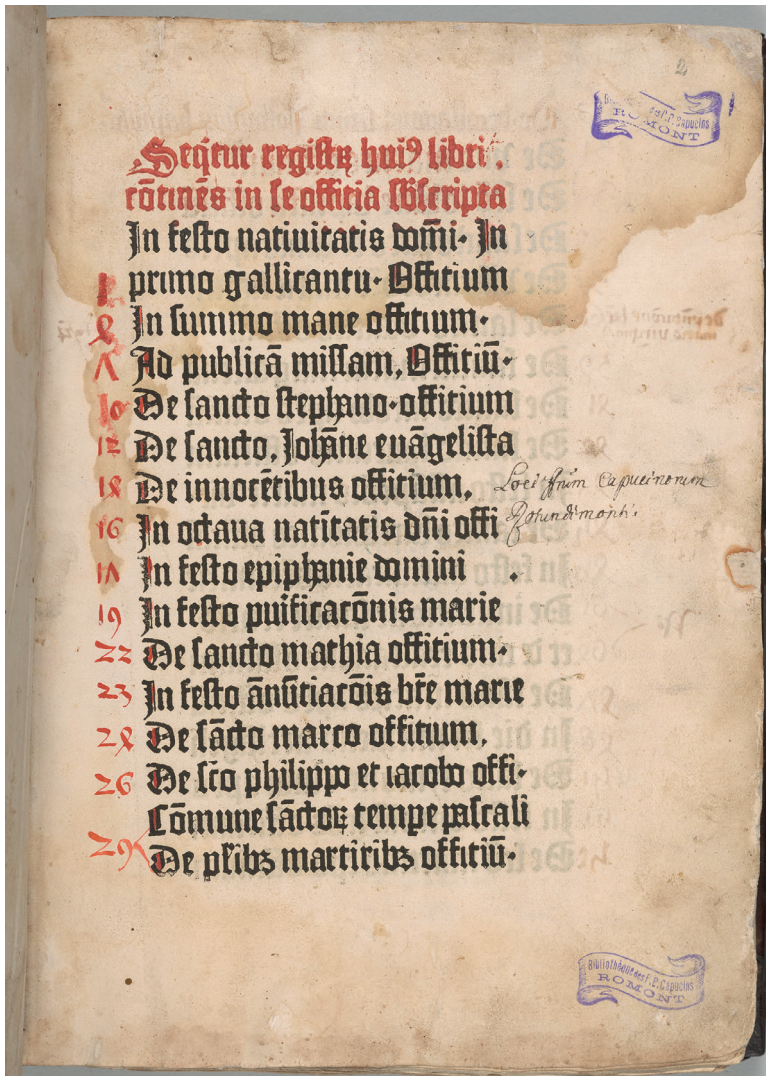 2
Bibliothèque des F.P. Capucins
ROMONT
Seq̄tur registrꝝ huiꝰ libri.
cōtinēs in se offitia sb̄scripta
In festo natiuitatis dom̄i. In
1 primo gallicantu. Offitium
4 In summo mane offitium.
7 Ad publicā missam, Offitiū.
10 De sancto stephano. offitium
12 De sancto, Joh̄ane euāgelista
14 De innocētibus offitium,
Loci ffrūm Capucinorum
Rotundimontis.
16 In octaua natiītatis dn̄i offi
17 In festo epiphanie domini .
19 In festo puificacōnis marie
22 De sancto mathia offitium.
23 In festo ānūtiacōis bt̄e marie
24 De sācto marco offitium,
26 De sc̄o philippo et iacobo offi.
Cōmune sāctoꝝ tempe pascali
29 De pl̄ibꝫ martiribꝫ offitiū.
Bibliothèque des F.P. Capucins
ROMONT